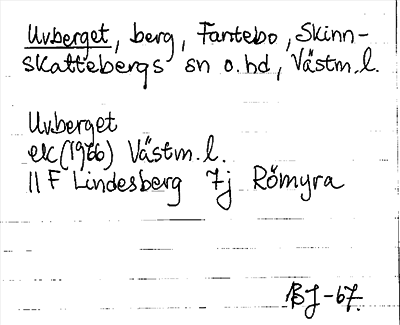 Uvberget, berg, Fantebo, Skinn-
skattebergs sn o. hd, Västm. l.
Uvberget
ek (1966) Västm. l.
11 F Lindesberg 7j Römyra
BJ-67.